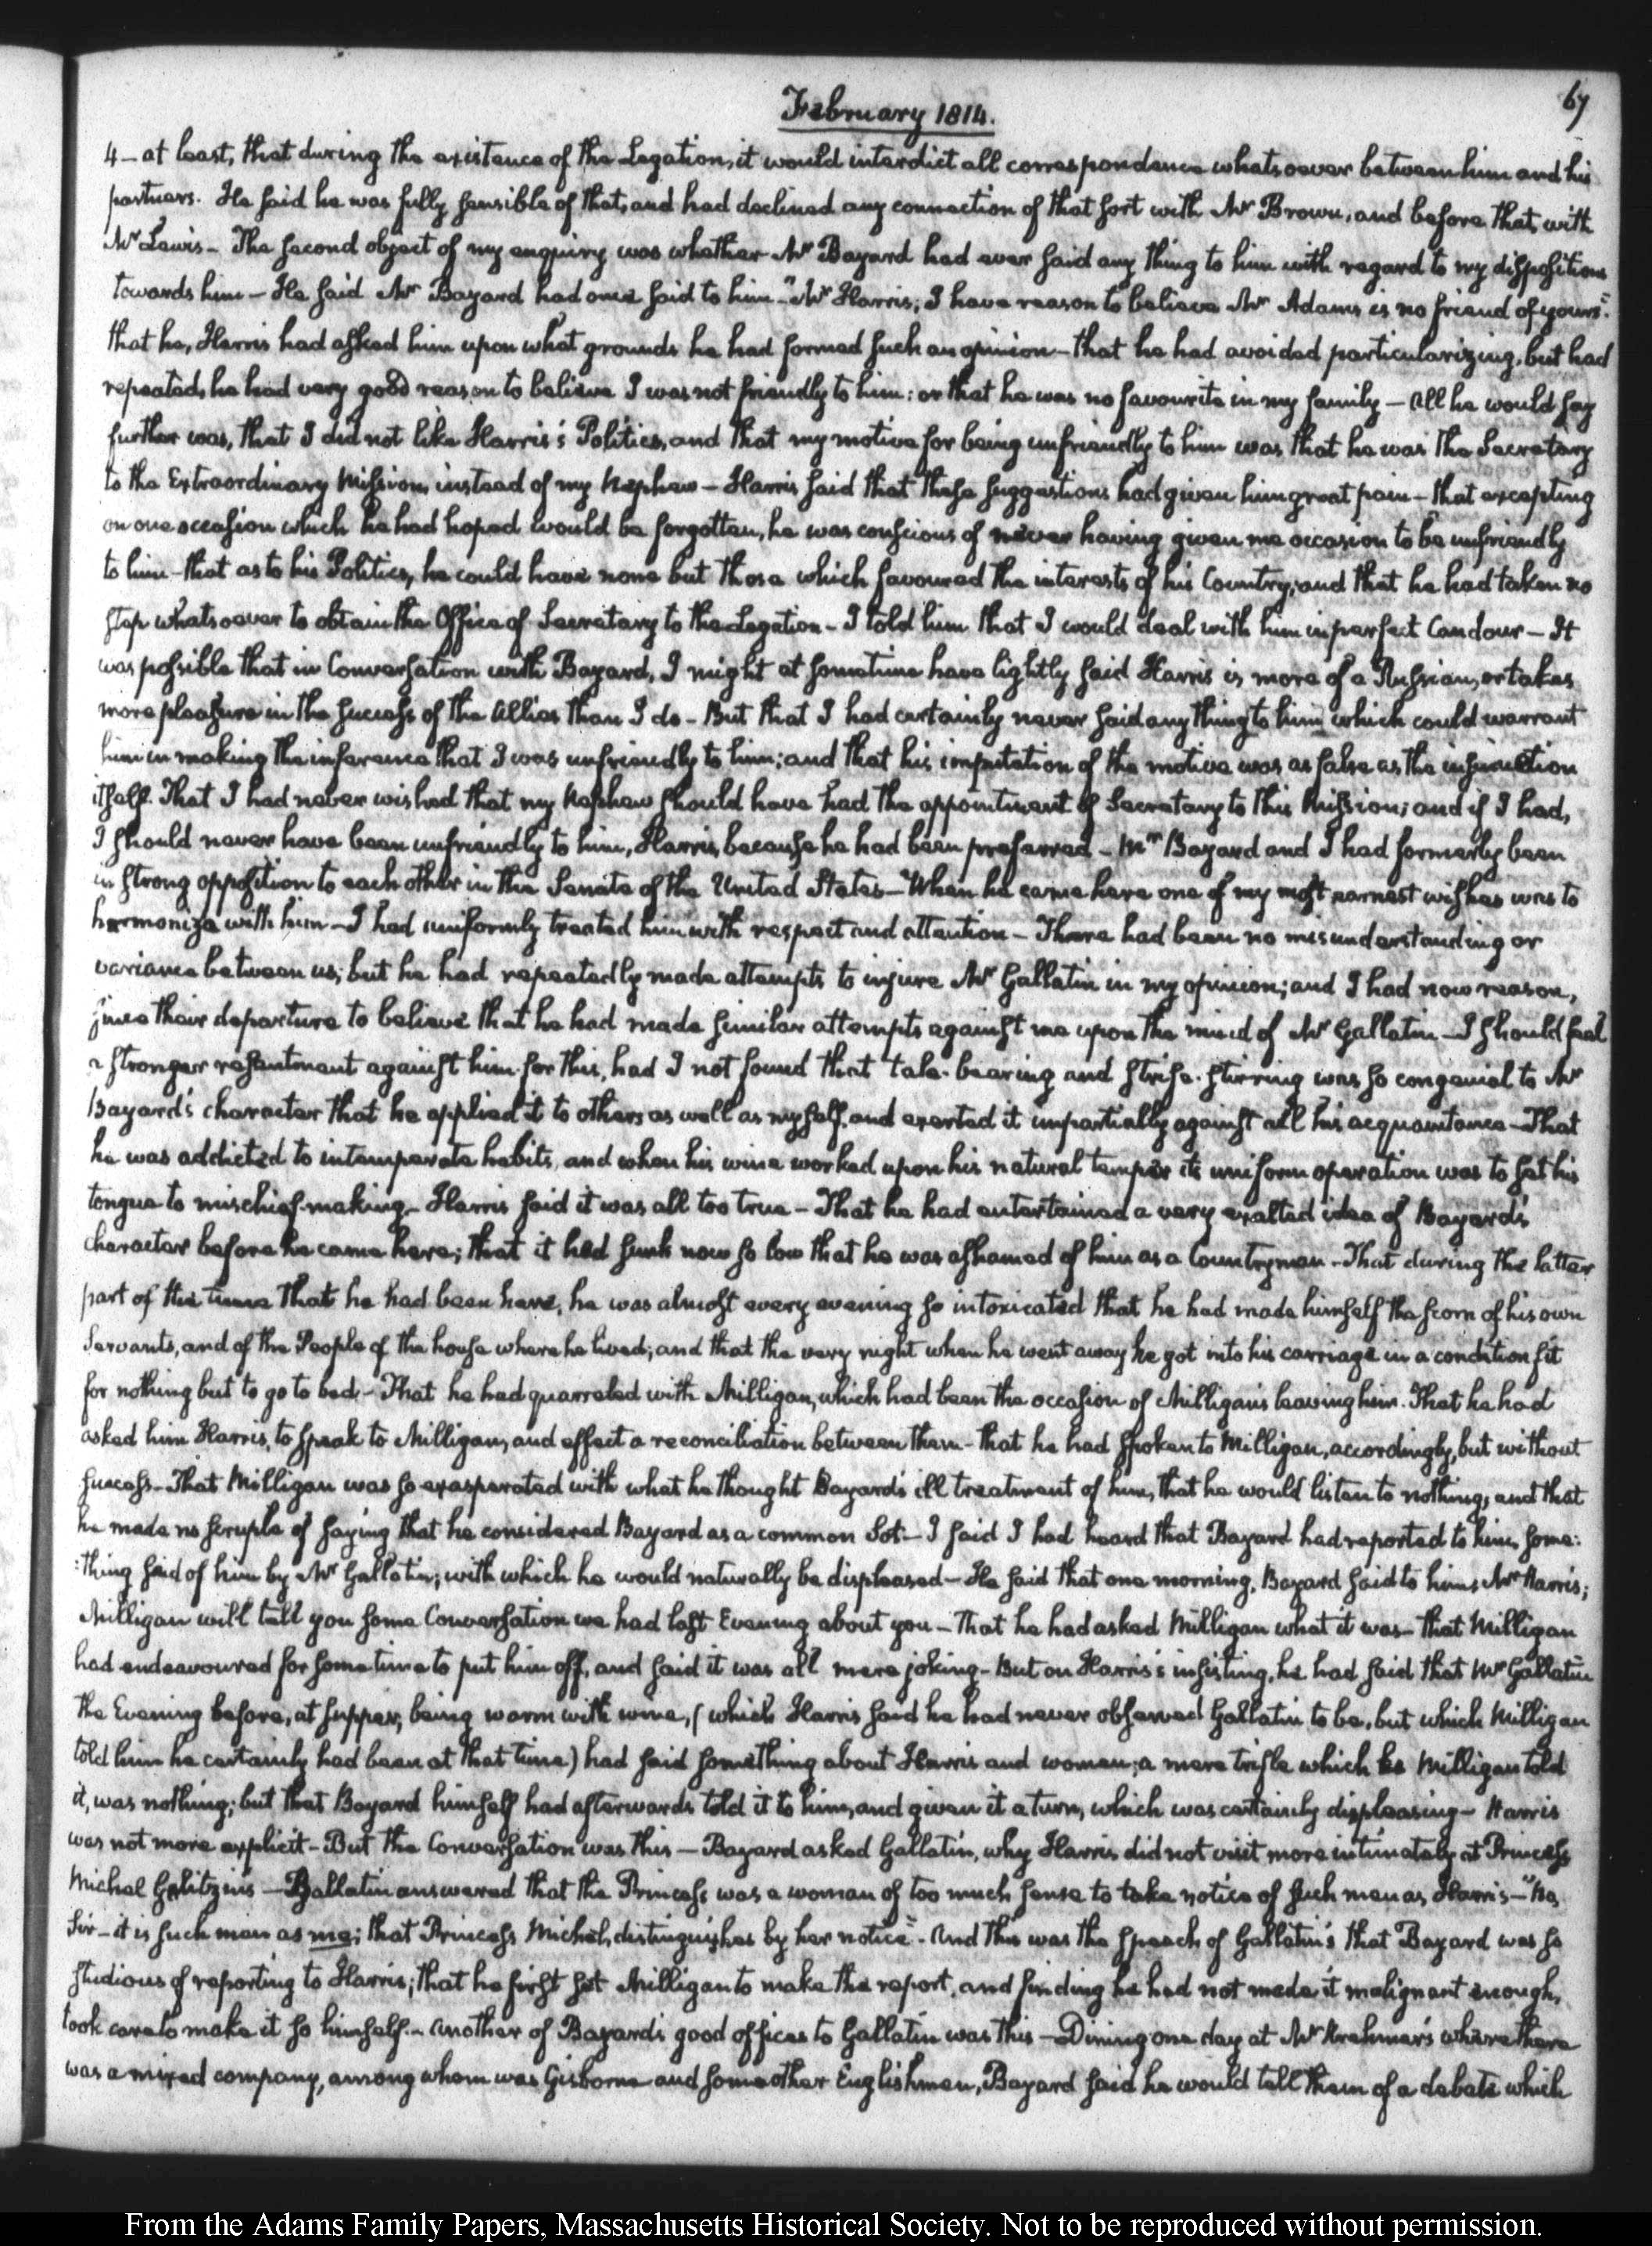 67
February 1814.
4 – at least, that during the existence of the Legation, it would interdict all correspondence whatsoever between him and his
partners. He said he was fully sensible of that, and had declined any connection of that sort with Mr Brown, and before that, with
Mr Lewis – The second object of my enquiry was whether Mr Bayard had ever said any thing to him with regard to my dispositions
towards him – He said Mr Bayard had once said to him – "Mr Harris, I have reason to believe Mr Adams is no friend of yours".
that he, Harris had asked him upon what grounds he had formed such an opinion – that he had avoided particularizing, but had
repeated, he had very good reason to believe I was not friendly to him: or that he was no favourite in my family – All he would say
further was, that I did not like Harris's Politics, and that my motive for being unfriendly to him was that he was the Secretary
to the Extraordinary Mission, instead of my Nephew – Harris said that these suggestions had given him great pain – that excepting
on one occasion which he had hoped would be forgotten, he was conscious of never having given me occasion to be unfriendly
to him – that as to his Politics, he could have none but those which favoured the interests of his Country; and that he had taken no
step whatsoever to obtain the Office of Secretary to the Legation – I told him that I would deal with him in perfect Candour – It
was possible that in Conversation with Bayard, I might at sometime have lightly said Harris is more of a Russian, or takes
more pleasure in the success of the Allies than I do – But that I had certainly never said any thing to him which could warrant
him in making the inference that I was unfriendly to him; and that his imputation of the motive was as false as the insinuation
itself. That I had never wished that my Nephew should have had the appointment of Secretary to this Mission; and if I had,
I should never have been unfriendly to him, Harris, because he had been preferred – Mr Bayard and I had formerly been
in strong opposition to each other in the Senate of the United States – When he came here one of my most earnest wishes was to
harmonize with him – I had uniformly treated him with respect and attention – There had been no misunderstanding or
variance between us; but he had repeatedly made attempts to injure Mr Gallatin in my opinion; and I had now reason,
since their departure to believe that he had made similar attempts against me upon the mind of Mr Gallatin – I should feel
a stronger resentment against him for this, had I not found that tale-bearing and strife-stirring was so congenial to Mr
Bayard's character that he applied it to others as well as myself, and exerted it impartially against all his acquaintance – That
he was addicted to intemperate habits, and when his wine worked upon his natural temper its uniform operation was to set his
tongue to mischief-making – Harris said it was all too true – That he had entertained a very exalted idea of Bayard's
character before he came here; that it had sunk now so low that he was ashamed of him as a Countryman – That during the latter
part of the time that he had been here, he was almost every evening so intoxicated that he had made himself the scorn of his own
Servants, and of the People of the house where he lived; and that the very night when he went away he got into his carriage in a condition fit
for nothing but to go to bed – That he had quarreled with Milligan, which had been the occasion of Milligan's leaving him. That he had
asked him Harris, to speak to Milligan, and effect a reconciliation between them – that he had spoken to Milligan, accordingly, but without
success – That Milligan was so exasperated with what he thought Bayard's ill treatment of him, that he would listen to nothing, and that
he made no scruple of saying that he considered Bayard as a common Sot – I said I had heard that Bayard had reported to him, some:
:thing said of him by Mr Gallatin; with which he would naturally be displeased – He said that one morning, Bayard said to him, Mr Harris;
Milligan will tell you some Conversation we had last Evening about you – That he had asked Milligan what it was – that Milligan
had endeavoured for sometime to put him off, and said it was all mere joking – But on Harris's insisting, he had said that Mr Gallatin
the Evening before, at supper, being warm with wine, (which Harris said he had never observed Gallatin to be, but which Milligan
told him he certainly had been at that time) had said something about Harris and women; a mere trifle which as Milligan told
it, was nothing; but that Bayard himself had afterwards told it to him, and given it a turn, which was certainly displeasing – Harris
was not more explicit – But the Conversation was this – Bayard asked Gallatin, why Harris did not visit more intimately at Princess
Michel Galitzin's – Gallatin answered that the Princess was a woman of too much sense to take notice of such men as Harris – "No,
Sir – it is such men as me; that Princess Michel, distinguishes by her notice". And this was the speech of Gallatin's that Bayard was so
studious of reporting to Harris; that he first set Milligan to make the report, and finding he had not made it malignant enough,
took care to make it so himself – Another of Bayard's good offices to Gallatin was this – Dining one day at Mr Krehmer's where there
was a mixed company, among whom was Gisborne and some other Englishmen, Bayard said he would tell them of a debate which
From the Adams Family Papers, Massachusetts Historical Society. Not to be reproduced without permission.